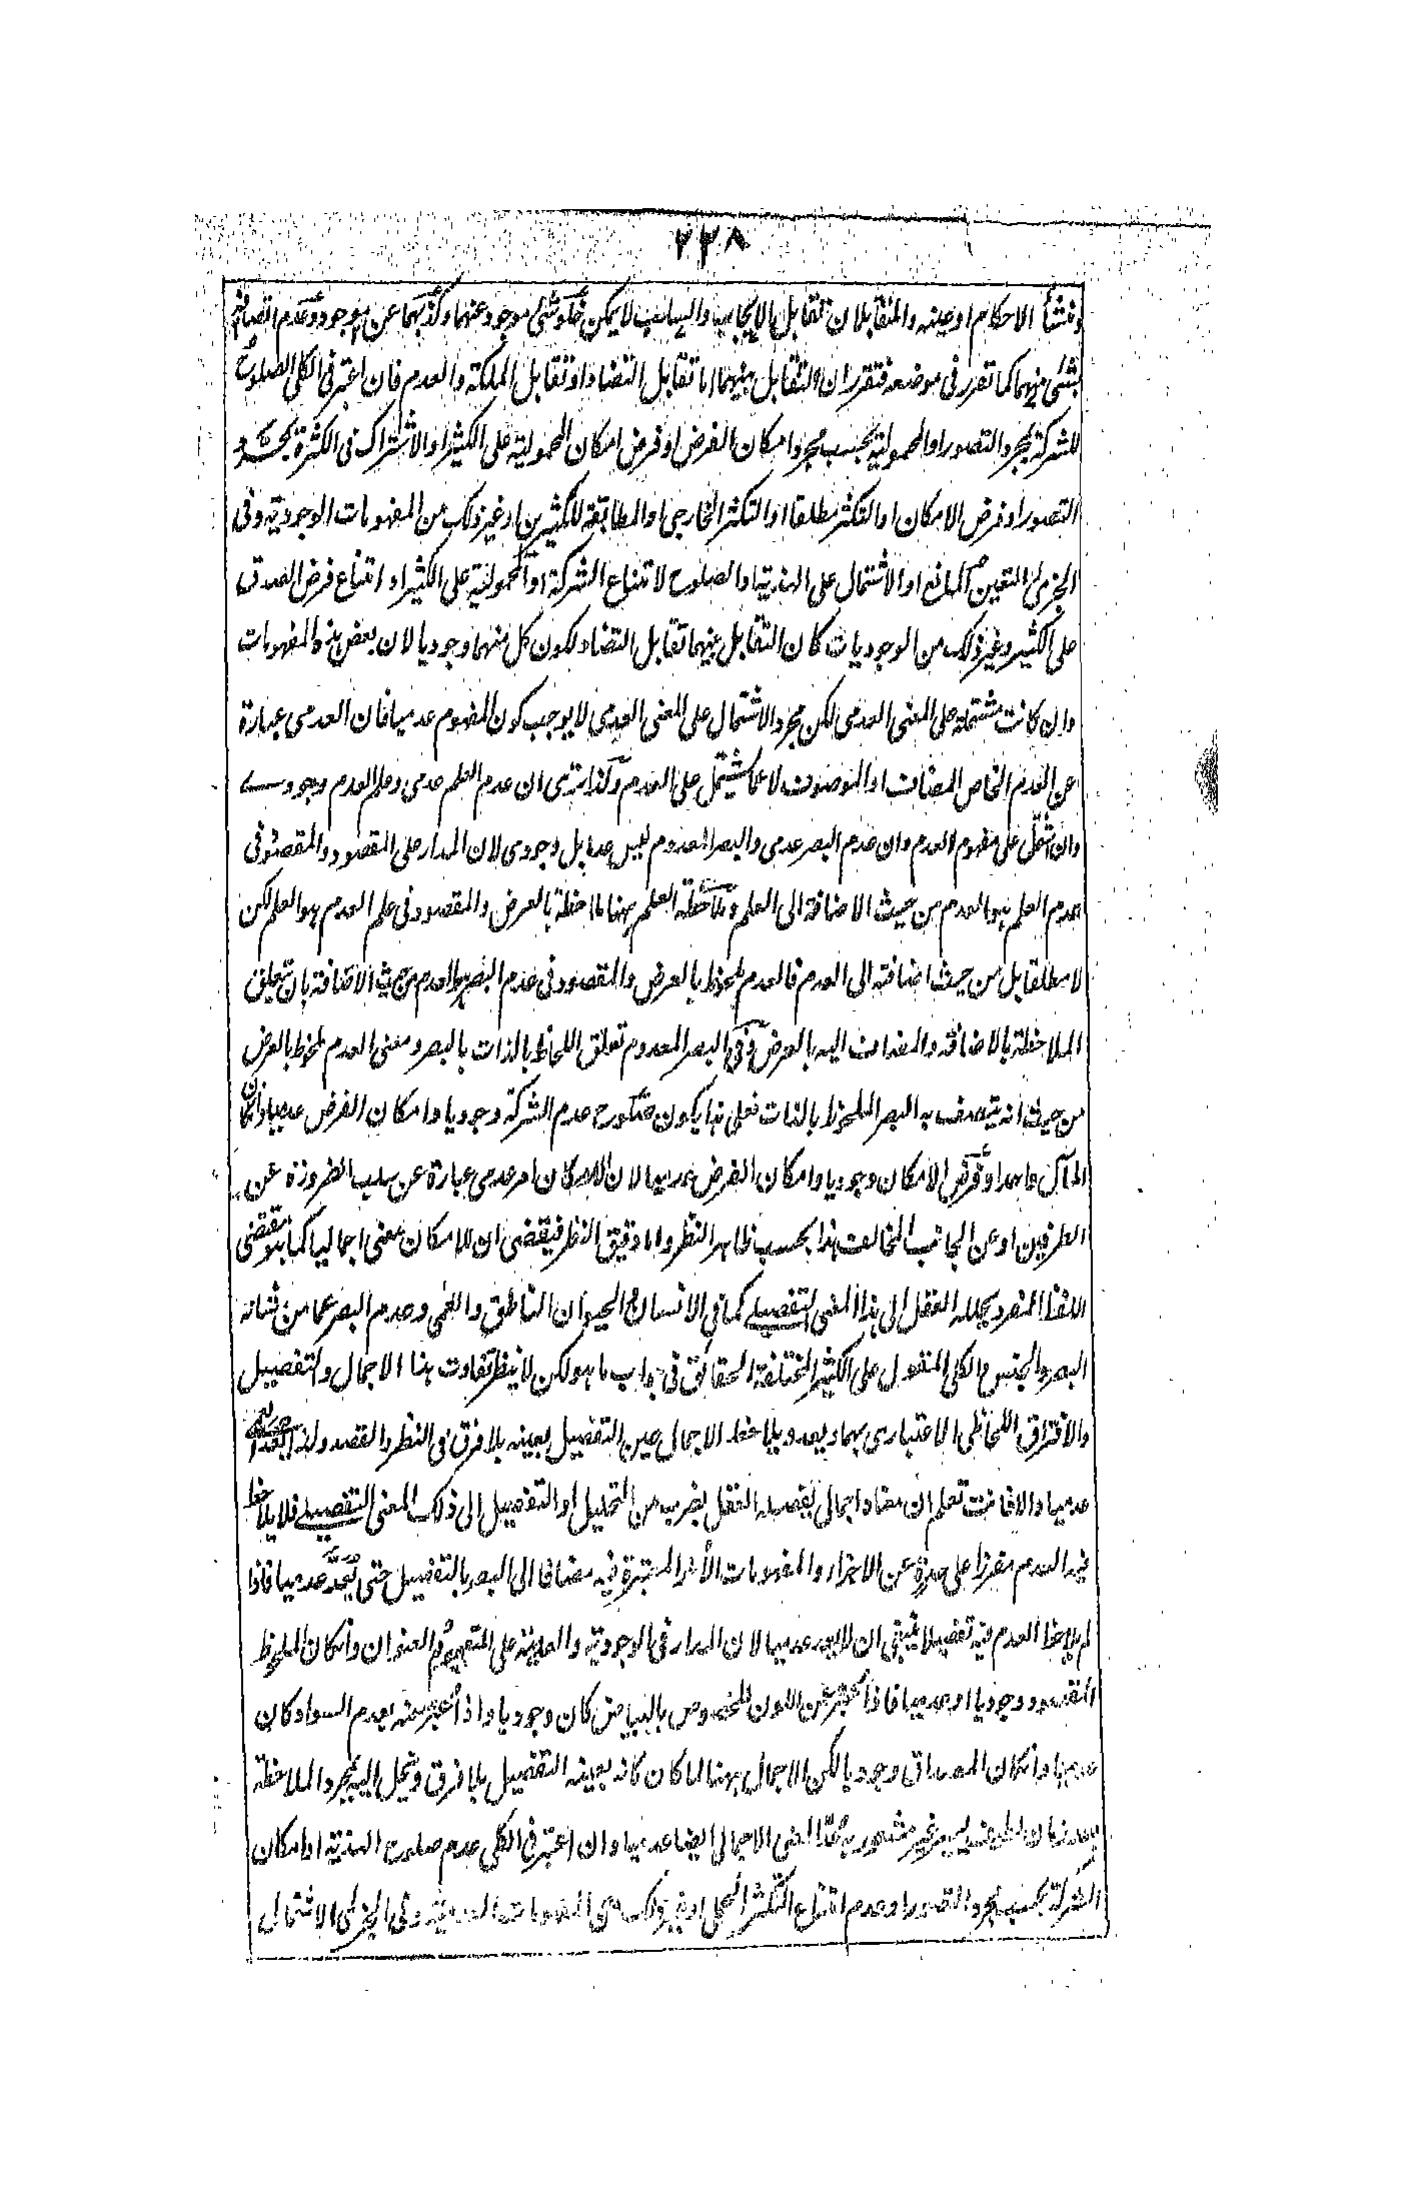 ٢٣٨
ومنشأ الاحكام او عينه والمتقابلان تقابل بالايجاب والسلب لا يمكن خلو شئ موجود عنهما وكذبهما عن موجود وعدم اتصافه
بشئ منهما كما تقرر فى موضعه فتقرر ان التقابل بينهما اما تقابل التضاد او تقابل الملكة والعدم فان اعتبر فى الكلى الصلوح
للشركة بمجرد التصور او المحمولية بحسب مجرد امكان الفرض او فرض امكان المحمولية على الكثير او الاشتراك فى الكثرة بحسب
التصور او فرض الامكان او التكثر مطلقا او التكثر الخارجى او المطابقة للكثيرين او غير ذلك من المفهومات الوجودية وفى
الجزئى التعين المانع او الاشتمال على الهذية او الصلوح لامتناع الشركة او المحمولية على الكثير او امتناع فرض الصدق
على الكثير وغير ذلك من الوجوديات كان التقابل بينهما تقابل التضاد لكون كل منهما وجوديا لان بعض هذه المفهومات
وان كانت مشتملة على المعنى العدمى لكن مجرد الاشتمال على المعنى العدمى لا يوجب كون المفهوم عدميا فان العدمى عبارة
عن العدم الخاص المضاف او الموصوف لا عما يشتمل على العدم ولذا ترى ان عدم العلم عدمى وعلم العدم وجودى
وان اشتمل على مفهوم العدم وان عدم البصر عدمى والبصر المعدوم ليس عدما بل وجودى لان المدار على المقصود والمقصود فى
عدم العلم هو العدم من حيث الاضافة الى العلم وملاحظة العلم ههنا ملاحظة بالعرض والمقصود فى علم العدم هو العلم لكن
لا مطلقا بل من حيث اضافته الى العدم فالعدم ملحوظ بالعرض والمقصود فى عدم البصر هو العدم من حيث الاضافة بان تتعلق
الملاحظة بالاضافة والمضاف اليه بالعرض وفى البصر المعدوم تعلق اللحاظ بالذات بالبصر ومعنى العدم ملحوظ بالعرض
من حيث انه يتصف به البصر الملحوظ بالذات فعلى هذا يكون صلوح عدم الشركة وجوديا وامكان الفرض عدميا وان كان
المآل واحدا وفرض الامكان وجوديا وامكان الفرض عدميا لان الامكان امر عدمى عبارة عن سلب الضرورة عن
الطرفين او عن الجانب المخالف هذا بحسب ظاهر النظر واما دقيق النظر فيقتضى ان للامكان معنى اجماليا كما هو مقتضى
اللفظ المفرد يحلله العقل الى هذا المعنى التفصيلى كما فى الانسان والحيوان الناطق والعمى وعدم البصر عما من شانه
البصر والجنس والكلى المقول على الكثير المختلفة الحقائق فى جواب ما هو لكن لا ينظر تفاوت هنا الاجمال والتفصيل
والافتراق اللحاظى الاعتبارى بهما ويعد ويلاحظ الاجمال عين التفصيل بعينه بلا فرق فى النظر والقصد ولذا
عدميا والا فانت تعلم ان مفاده اجمالى يفصله العقل بضرب من التحليل او التفصيل الى ذلك المعنى التفصيلى فلا يلاحظ
فيه العدم مفرزا على حدة عن الاجزاء والمفهومات الأخر المعتبرة فيه مضافا الى البصر بالتفصيل حتى يعد عدميا فاذا
لم يلاحظ العدم فيه تفصيلا ينبغى ان لا يعد عدميا لان المدار فى الوجودية والعدمية على المفهوم والعنوان وان كان الملحوظ
المقصود وجوديا او عدميا فاذا عبر عن اللون المخصوص بالبياض كان وجوديا واذا عبر عنه بعدم السواد كان
عدميا وان كان المصداق وجوديا لكن الاجمال ههنا لما كان كانه بعينه التفصيل بلا فرق وينحل اليه بمجرد الملاحظة
غير مشعور به عد المعنى الاجمالى ايضا عدميا وان اعتبر فى الكلى عدم صلوح الهذية او امكان
الشركة بحسب مجرد التصور او عدم امتناع التكثر او غير ذلك من المفهومات العدمية وفى الجزئى الاشتمال